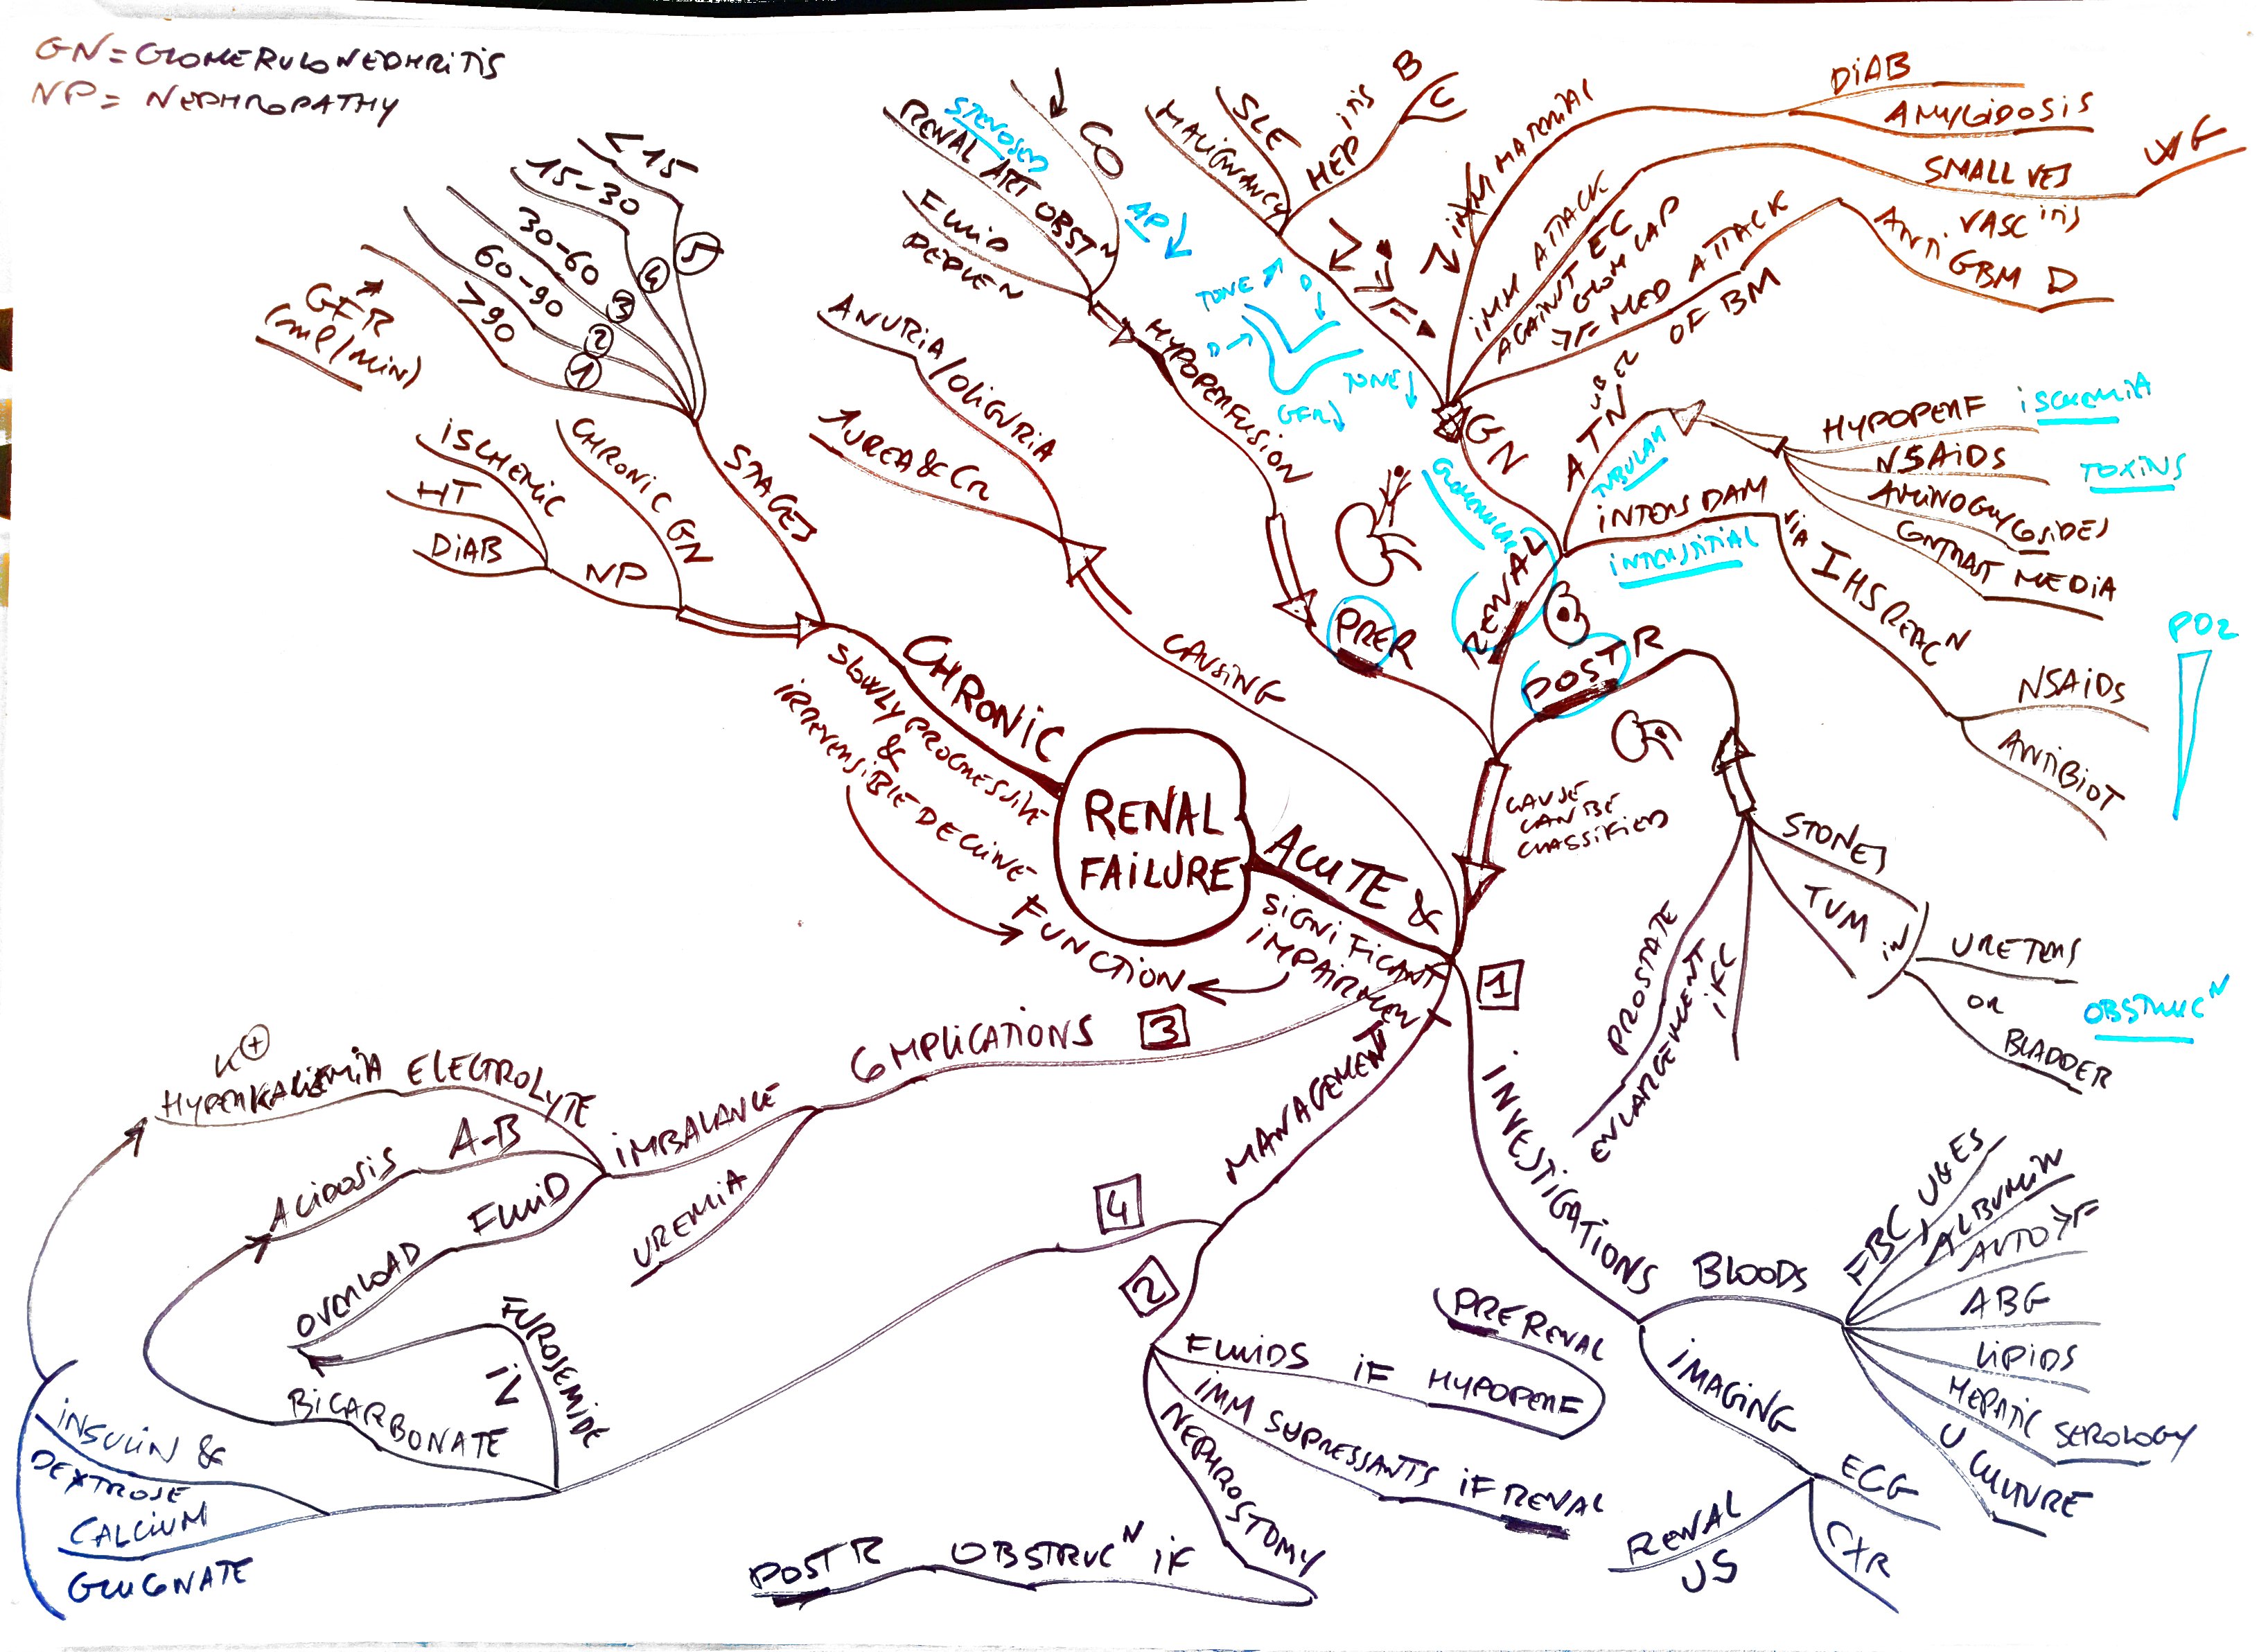 GN = GLOMERULONEPHRITIS
NP = NEPHROPATHY
RENAL
FAILURE
CHRONIC
SLOWLY PROGRESSIVE
&
IRREVERSIBLE DECLINE
FUNCTION
STAGES
GFR
(ml/min)
>90
①
60-90
②
30-60
③
15-30
④
<15
⑤
CHRONIC GN
NP
ISCHEMIC
HT
DIAB
ACUTE &
SIGNIFICANT
IMPAIRMENT
CAUSING
ANURIA/OLIGURIA
↑UREA & CR
CAUSE
CAN BE
CLASSIFIED
PRER
HYPOPERFUSION
↓ CO
STENOSED
RENAL ART OBST N
FLUID
AP↓
TONE ↑
D
D
TONE↓
GFR↓
RENAL
GLOMERULAR
GN
MALIGNANCY
SLE
HEP itis B
C
MATERIAL
DIAB
AMYLOIDOSIS
IMM ATTACK
AGAINST EC
GLOM CAP
SMALL VES
VASC itis
WG
MED ATTACK
OF BM
ANTI
GBM D
ATN
TUBULAR
HYPOPERF
ISCHEMIA
NSAIDS
TOXINS
AMINOGLYCOSIDES
CONTRAST MEDIA
INTERS DAM
INTERSTITIAL
VIA
I HS REAC N
NSAIDS
ANTIBIOT
PO2
POST R
STONES
TUM
IN
URETERS
OR
BLADDER
OBSTRUC N
PROSTATE
ENLARGEMENT
1
INVESTIGATIONS
BLOODS
FBC U&ES
ALBUMIN
AUTO
ABG
LIPIDS
HEPATIC SEROLOGY
U CULTURE
IMAGING
ECG
CXR
RENAL
US
MANAGEMENT
2
FLUIDS IF HYPOPERF
PRERENAL
IMM SUPRESSANTS IF RENAL
NEPHROSTOMY
IF
OBSTRUC N
POST R
3
COMPLICATIONS
IMBALANCE
ELECTROLYTE
K+
HYPERKALIEMIA
A-B
ACIDOSIS
FLUID
OVERLOAD
UREMIA
4
FUROSEMIDE
IV
BICARBONATE
INSULIN &
DEXTROSE
CALCIUM
GLUCONATE